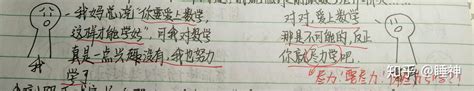 我妈总说"你要爱上数学,
这样才能学好",可我对数学
真是一点兴趣没有,我也努力
学了
我
对对,爱上数学
那是不可能的,反正
你就尽力学吧.
"尽力!要尽力!
知乎 @睡神